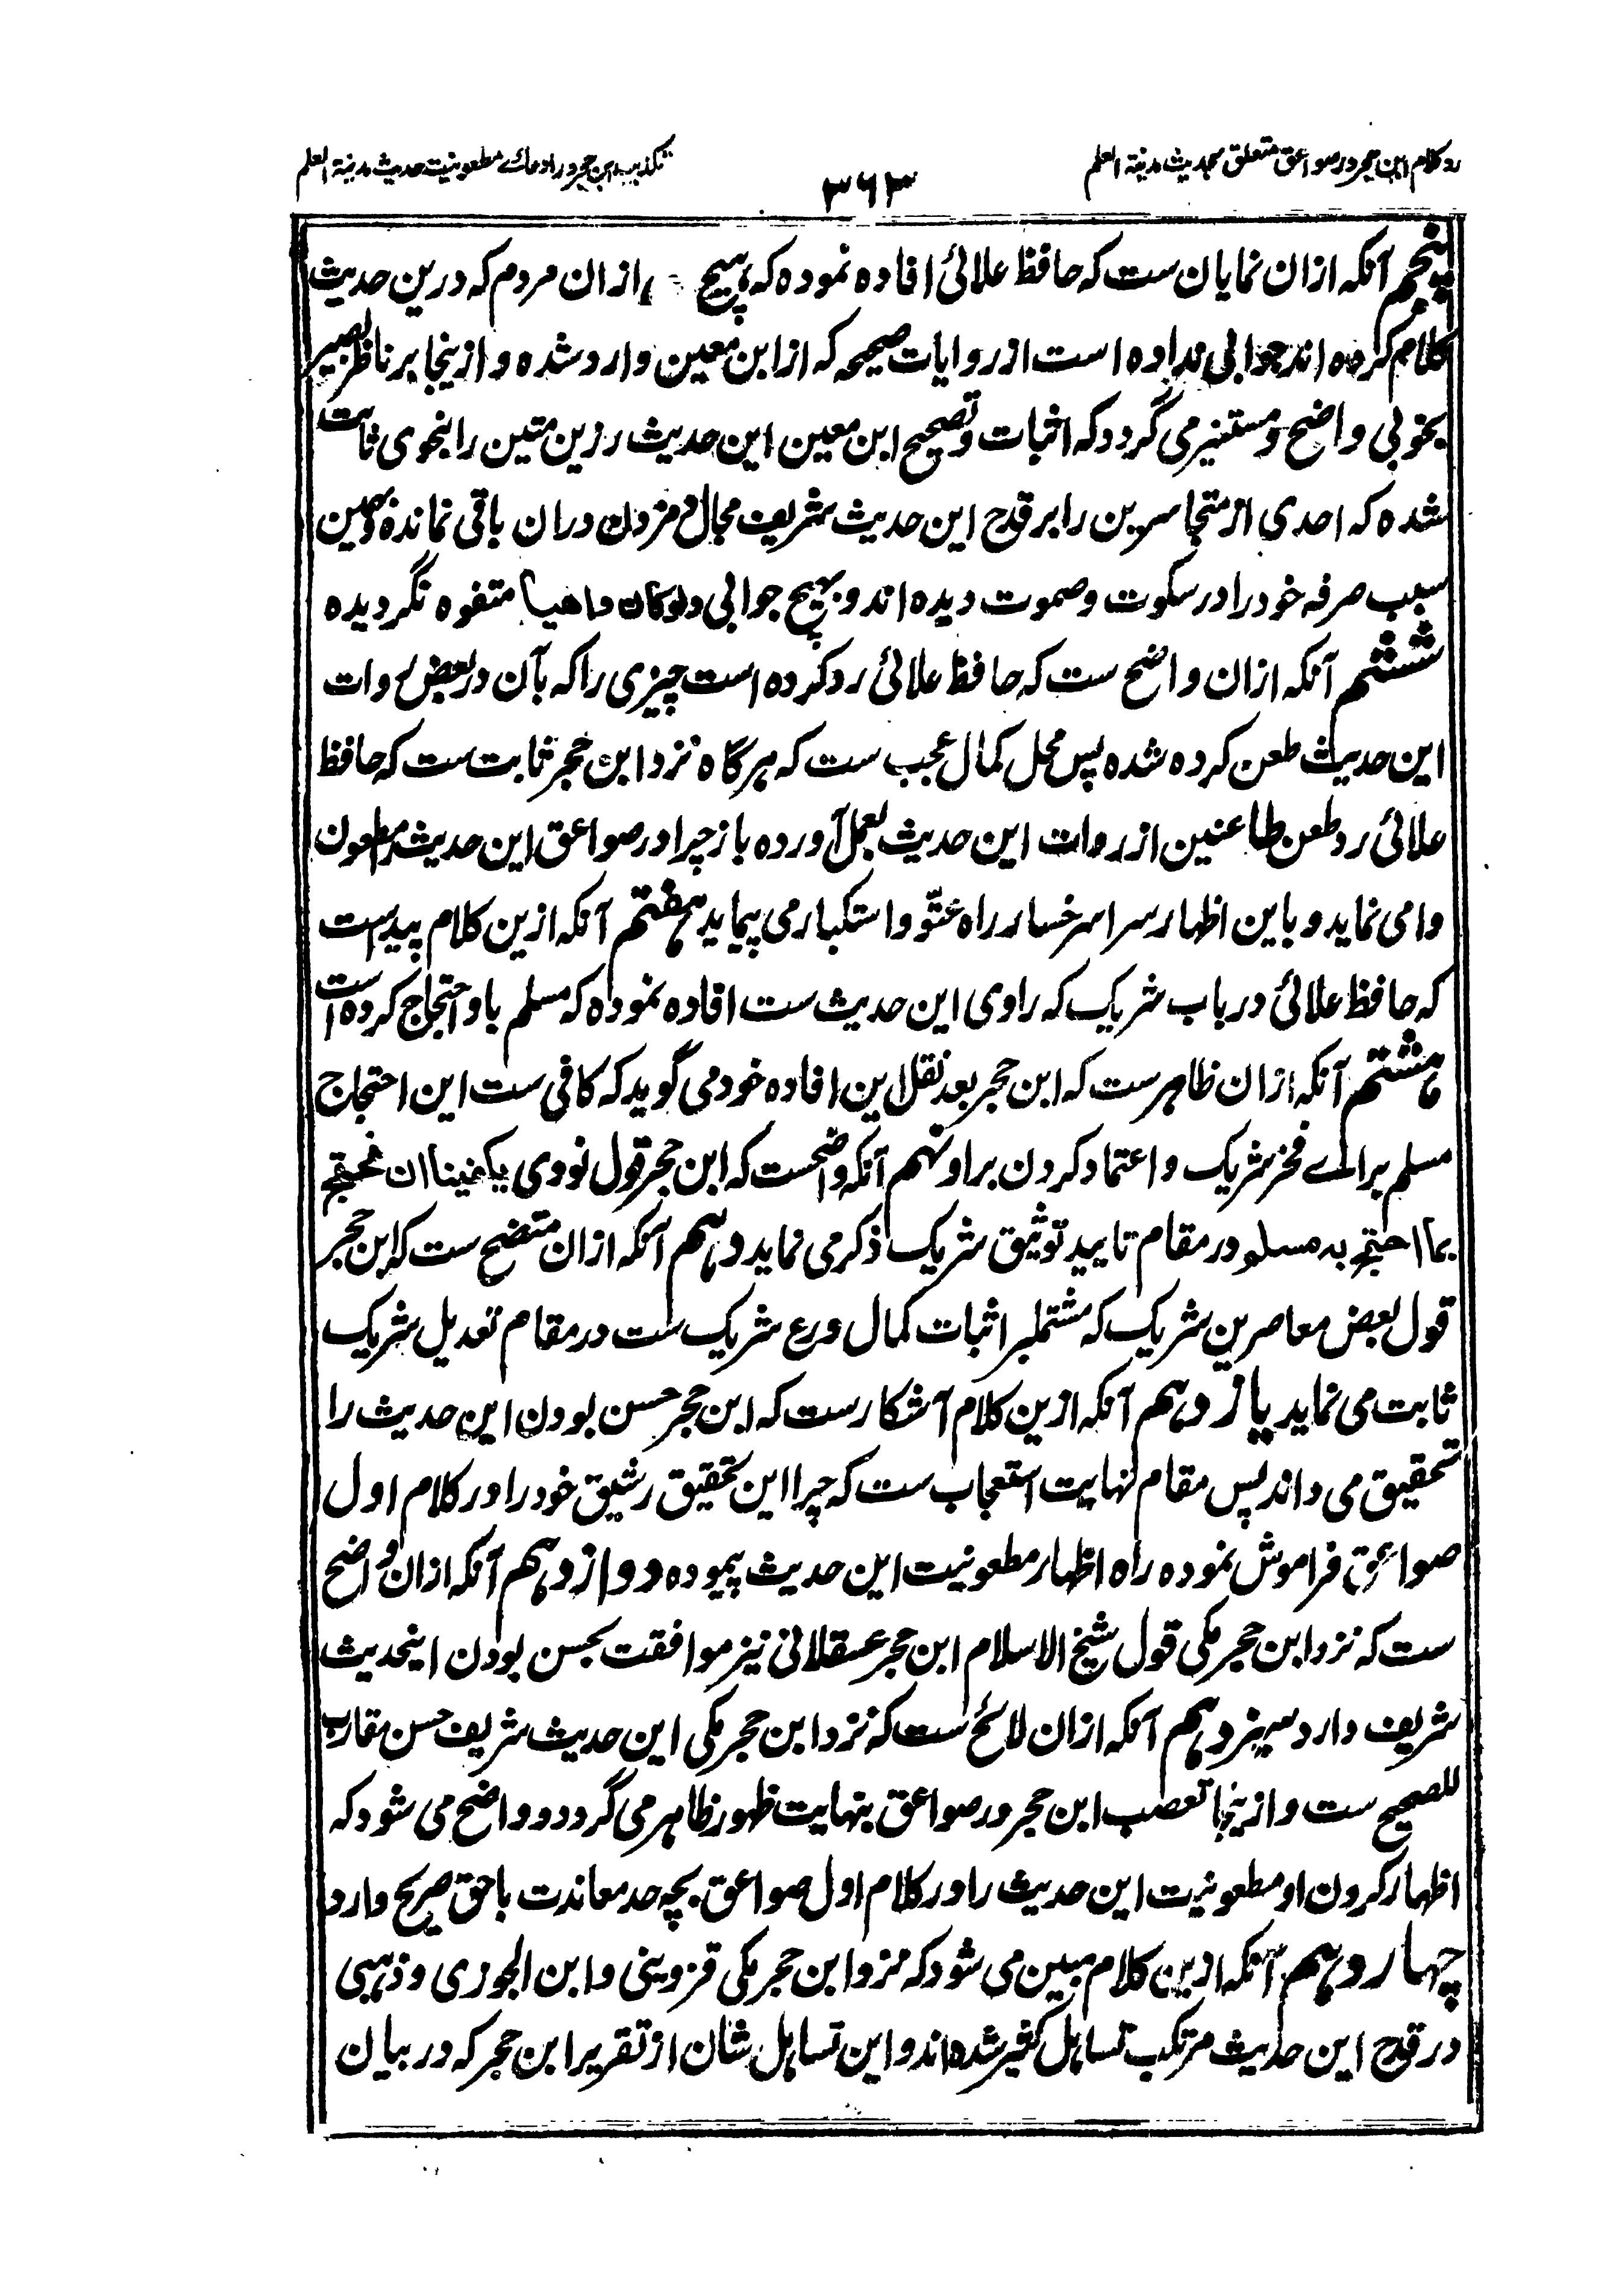 رد کلام ابن حجر در صواعق متعلق بحدیث مدینة العلم
۳۶۳
تکذیب ابن حجر در ادعای مطعونیت حدیث مدینة العلم
پنجم آنکه ازان نمایان ست که حافظ علائی افاده نموده که هیچ یک ازان مردم که درین حدیث
کلام کرده اند جوابی نداده است از روایات صحیحه که از ابن معین وارد شده و ازینجا بر ناظر بصیر
بخوبی واضح و مستنیر می گردد که اثبات و تصحیح ابن معین این حدیث رزین متین را بنحوی ثابت
شده که احدی از متجاسرین را بر قدح این حدیث شریف مجال دم زدن دران باقی نمانده و همین
سبب صرفه خود را در سکوت و صموت دیده اند و بهیچ جوابی ولو کان واهیا متفوه نگردیده
ششم آنکه ازان واضح ست که حافظ علائی رد کرده است چیزی را که بآن در بعض روات
این حدیث طعن کرده شده پس محل کمال عجب ست که هرگاه نزد ابن حجر ثابت ست که حافظ
علائی رد طعن طاعنین از روات این حدیث بعمل آورده باز چرا در صواعق این حدیث را مطعون
وامی نماید و باین اظهار سراسر خسار راه عتوّ و استکبار می پیماید هفتم آنکه ازین کلام پیداست
که حافظ علائی در باب شریک که راوی این حدیث ست افاده نموده که مسلم باو احتجاج کرده است
هشتم آنکه ازان ظاهرست که ابن حجر بعد نقل این افاده خود می گوید که کافی ست این احتجاج
مسلم برای فخر شریک و اعتماد کردن بر او نهم آنکه واضحست که ابن حجر قول نووی یکفینا ان نحتج
بما احتج به مسلم در مقام تایید توثیق شریک ذکر می نماید دهم آنکه ازان متضح ست که ابن حجر
قول بعض معاصرین شریک که مشتملبر اثبات کمال ورع شریک ست در مقام تعدیل شریک
ثابت می نماید یازدهم آنکه ازین کلام آشکارست که ابن حجر حسن بودن این حدیث را
تحقیق می داند پس مقام نهایت استعجاب ست که چرا این تحقیق رشیق خود را در کلام اول
صواعق فراموش نموده راه اظهار مطعونیت این حدیث پیموده دوازدهم آنکه ازان واضح
ست که نزد ابن حجر مکی قول شیخ الاسلام ابن حجر عسقلانی نیز موافقت بحسن بودن اینحدیث
شریف دارد سیزدهم آنکه ازان لائح ست که نزد ابن حجر مکی این حدیث شریف حسن مقارب
للصحیح ست و ازینها تعصب ابن حجر در صواعق بنهایت ظهور ظاهر می گردد و واضح می شود که
اظهار کردن او مطعونیت این حدیث را در کلام اول صواعق بچه حد معاندت با حق صریح دارد
چهاردهم آنکه ازین کلام مبین می شود که نزد ابن حجر مکی قزوینی و ابن الجوزی و ذهبی
در قدح این حدیث مرتکب تساهل کثیر شده اند و این تساهل شان از تقریر ابن حجر که در بیان